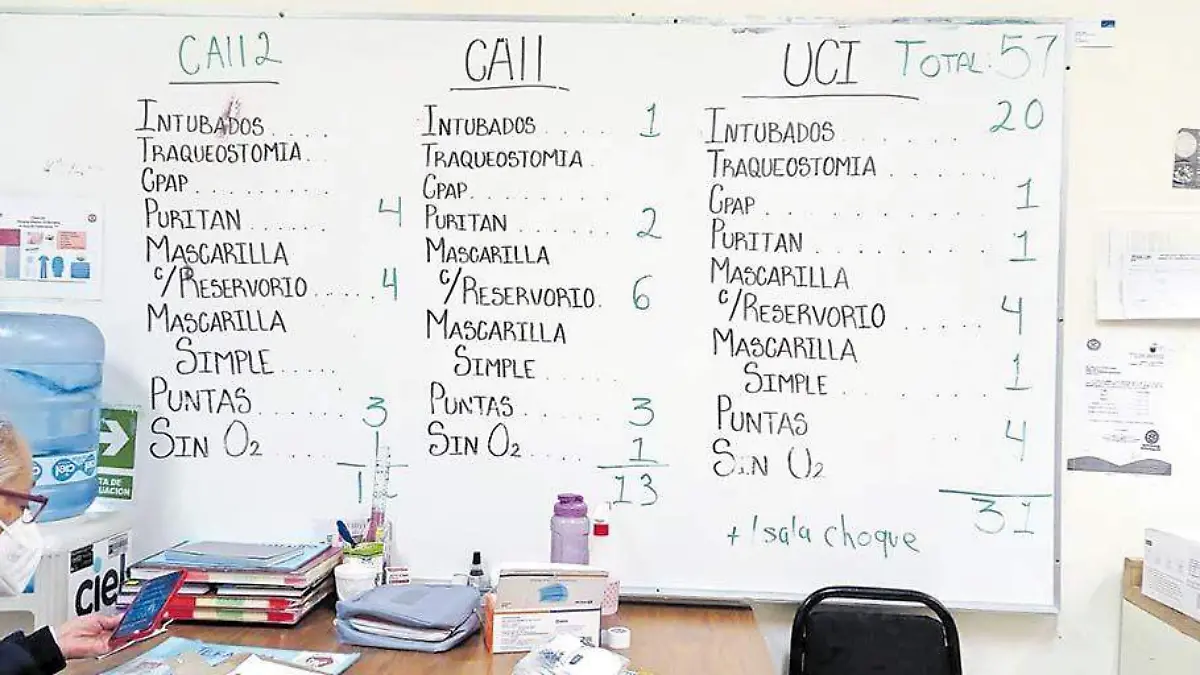 CAII 2
INTUBADOS ....
TRAQUEOSTOMIA .
CPAP ..........
PURITAN ......... 4
MASCARILLA
C/RESERVORIO ..... 4
MASCARILLA
SIMPLE .....
PUNTAS ......... 3
SIN O2 ....... 1
CAII
INTUBADOS ..... 1
TRAQUEOSTOMIA .
CPAP ..........
PURITAN ....... 2
MASCARILLA
C/RESERVORIO . 6
MASCARILLA
SIMPLE ......
PUNTAS ...... 3
SIN O2 ..... 1
13
UCI TOTAL: 57
INTUBADOS ....... 20
TRAQUEOSTOMIA .......
CPAP ............. 1
PURITAN .......... 1
MASCARILLA
C/RESERVORIO ...... 4
MASCARILLA
SIMPLE ......... 1
PUNTAS ... 4
SIN O2
31
+ 1 sala choque
ciel
ciel